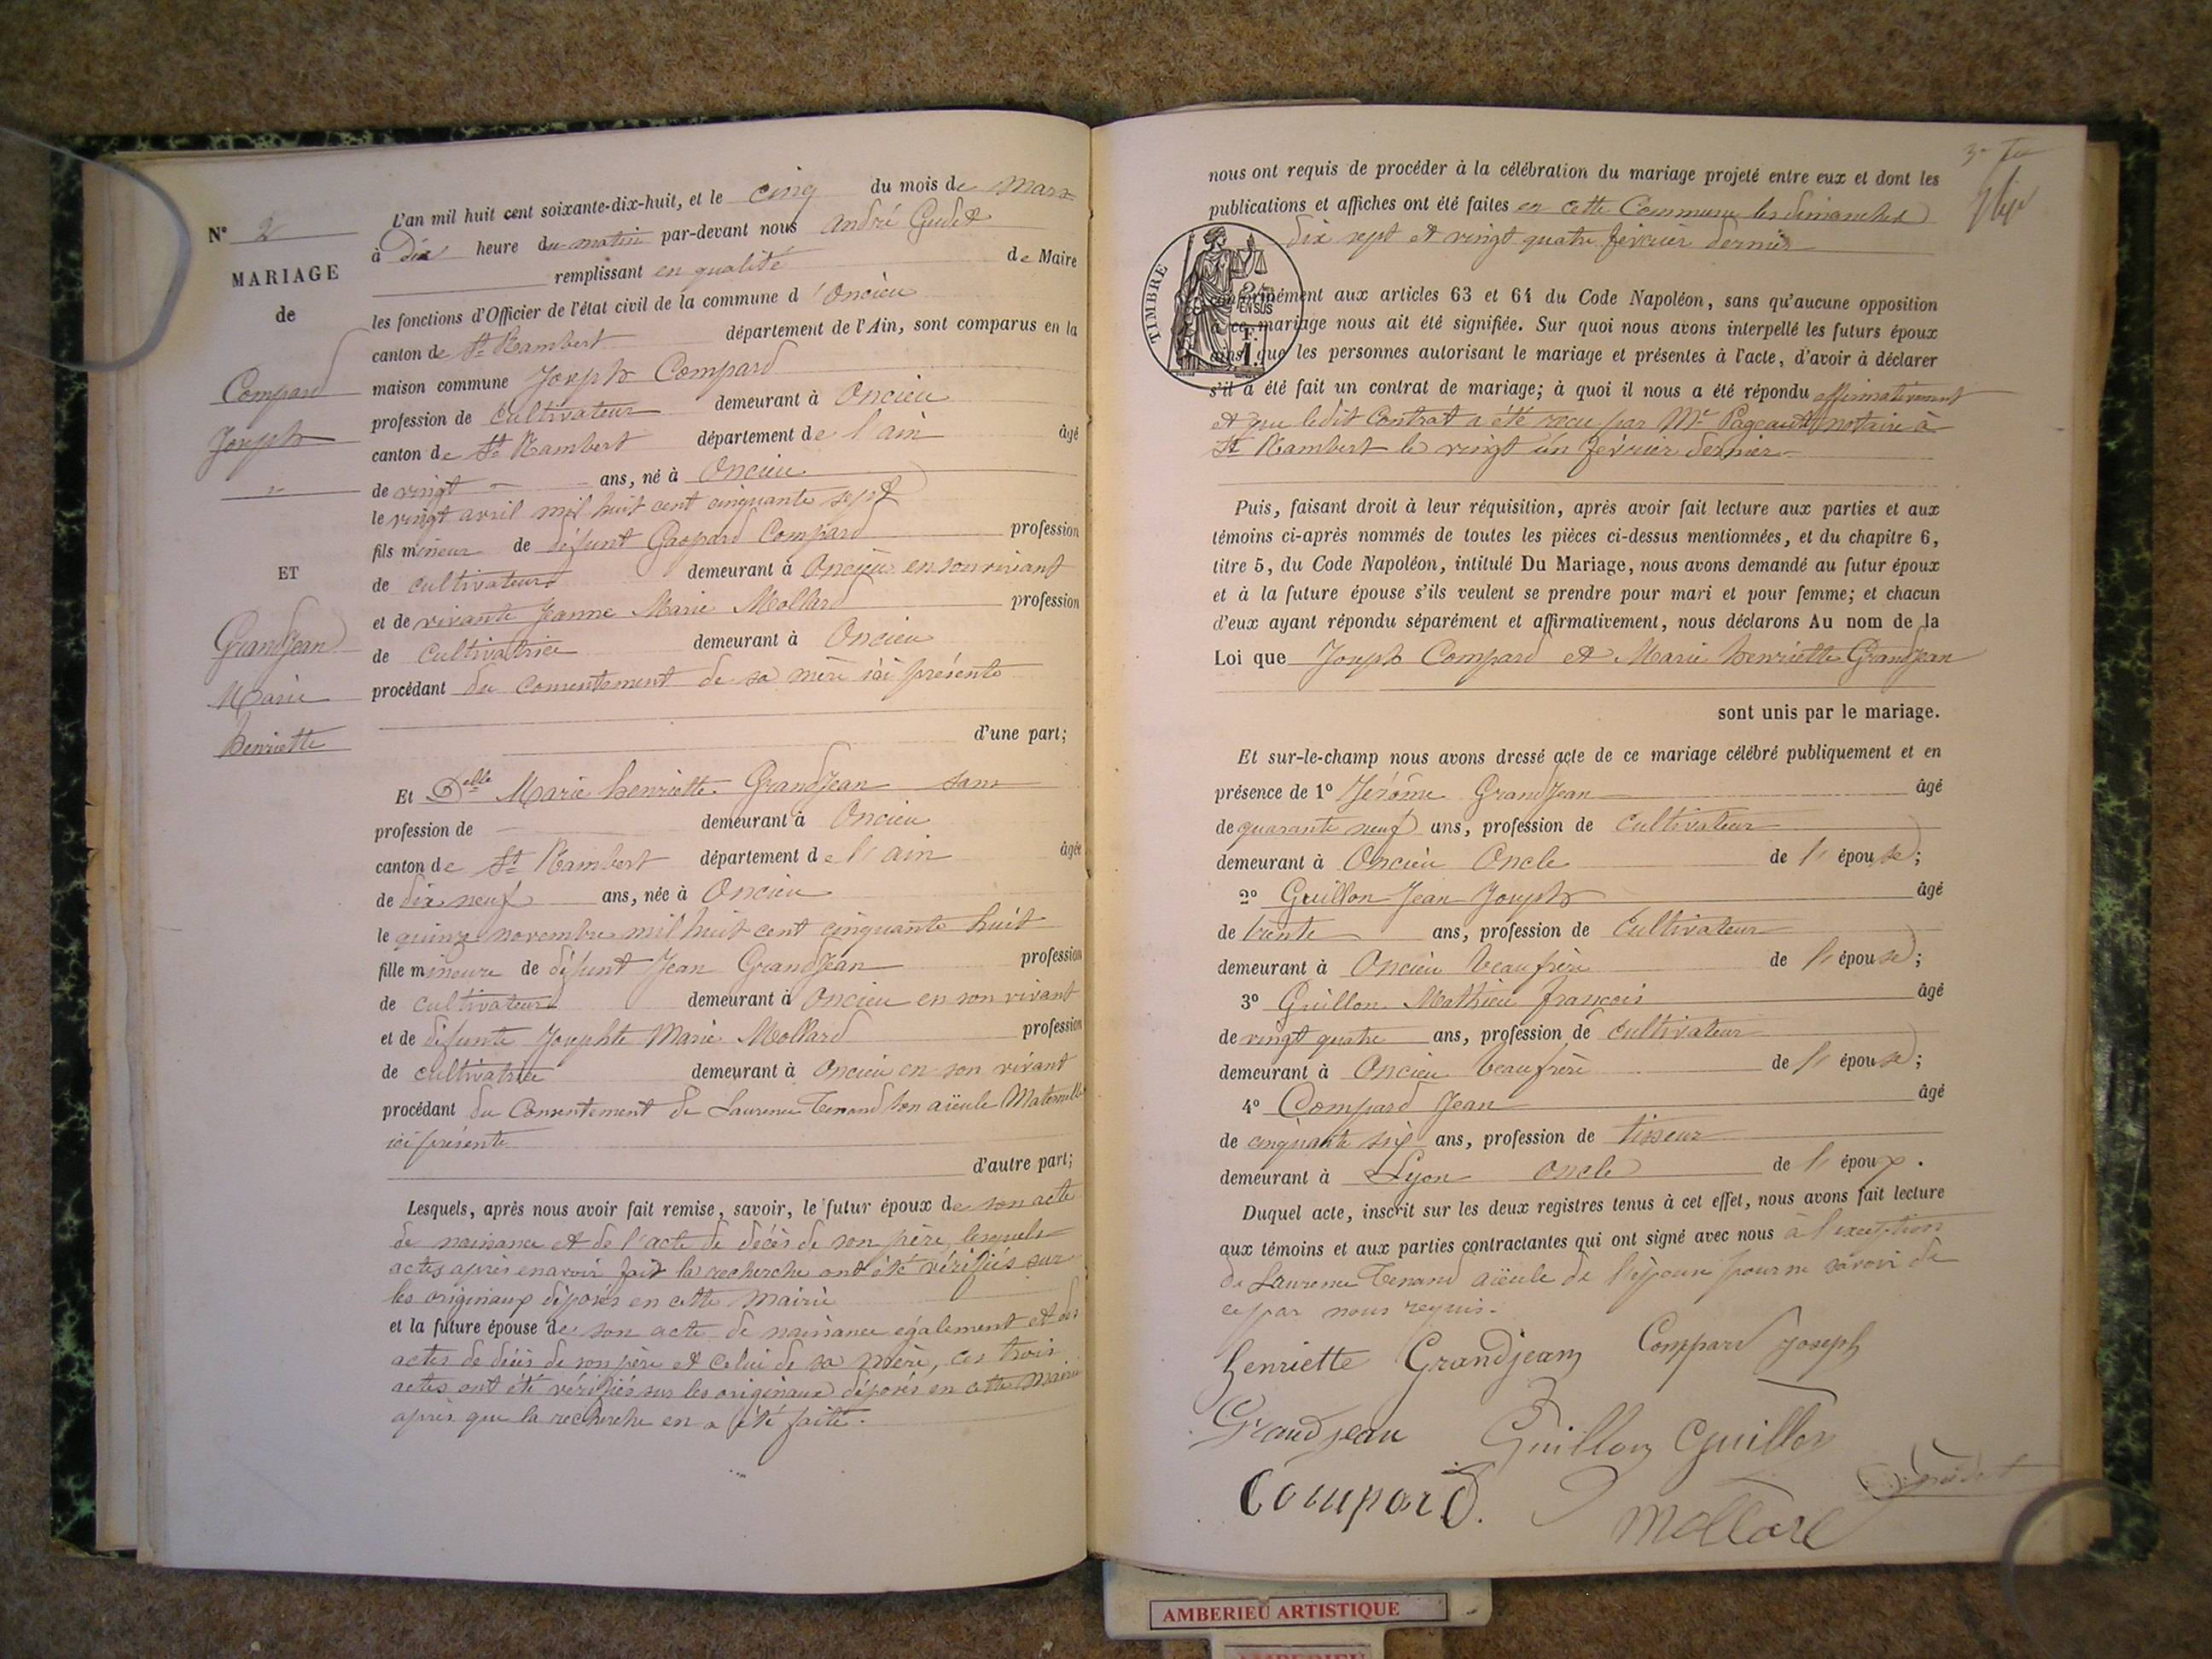 N° 2
MARIAGE
de
Compard
Joseph
ET
GrandJean
Marie
henriette
L'an mil huit cent soixante-dix-huit, et le cinq du mois de Mars
à Dix heure du matin par-devant nous André Gudet
remplissant en qualité de Maire
les fonctions d'Officier de l'état civil de la commune d'Oncieu
canton de St Rambert département de l'Ain, sont comparus en la
maison commune Joseph Compard
profession de cultivateur demeurant à Oncieu
canton de St Rambert département de l'ain âgé
de vingt ans, né à Oncieu
le vingt avril mil huit cent cinquante sept
fils mineur de défunt Gaspard Compard profession
de cultivateur demeurant à Oncieu en son vivant
et de vivante Jeanne Marie Mollard profession
de Cultivatrice demeurant à Oncieu
procédant du consentement de sa mère ici présente
d'une part;
Et Delle Marie henriette GrandJean sans
profession de demeurant à Oncieu
canton de St Rambert département de l'ain âgée
de dix neuf ans, née à Oncieu
le quinze novembre mil huit cent cinquante huit
fille mineure de défunt Jean GrandJean profession
de cultivateur demeurant à Oncieu en son vivant
et de défunte Josephte Marie Mollard profession
de cultivatrice demeurant à Oncieu en son vivant
procédant du Consentement de Laurence Tenand son aïeule Maternelle
ici présente
d'autre part;
Lesquels, après nous avoir fait remise, savoir, le futur époux de son acte
de naissance et de l'acte de décès de son père, lesquels
actes après en avoir fait la recherche ont été vérifiés sur
les originaux déposés en cette Mairie
et la future épouse de son acte de naissance également et des
actes de décès de son père et celui de sa mère, ces trois
actes ont été vérifiés sur les originaux déposés en cette Mairie
après que la recherche en a été faite.
nous ont requis de procéder à la célébration du mariage projeté entre eux et dont les
publications et affiches ont été faites en cette Commune les dimanches
dix sept et vingt quatre février dernier
TIMBRE
conformément aux articles 63 et 64 du Code Napoléon, sans qu'aucune opposition
à ce mariage nous ait été signifiée. Sur quoi nous avons interpellé les futurs époux
ainsi que les personnes autorisant le mariage et présentes à l'acte, d'avoir à déclarer
s'il a été fait un contrat de mariage; à quoi il nous a été répondu affirmativement
et que ledit Contrat a été reçu par Me Pageault notaire à
St Rambert le vingt un février dernier
Puis, faisant droit à leur réquisition, après avoir fait lecture aux parties et aux
témoins ci-après nommés de toutes les pièces ci-dessus mentionnées, et du chapitre 6,
titre 5, du Code Napoléon, intitulé Du Mariage, nous avons demandé au futur époux
et à la future épouse s'ils veulent se prendre pour mari et pour femme; et chacun
d'eux ayant répondu séparément et affirmativement, nous déclarons Au nom de la
Loi que Joseph Compard et Marie henriette GrandJean
sont unis par le mariage.
Et sur-le-champ nous avons dressé acte de ce mariage célébré publiquement et en
présence de 1° Jérôme GrandJean âgé
de quarante neuf ans, profession de Cultivateur
demeurant à Oncieu Oncle de l'épouse;
2° Guillon Jean Joseph âgé
de trente ans, profession de Cultivateur
demeurant à Oncieu beau frère de l'épouse;
3° Guillon Mathieu françois âgé
de vingt quatre ans, profession de Cultivateur
demeurant à Oncieu beau frère de l'épouse;
4° Compard Jean âgé
de cinquante six ans, profession de tisseur
demeurant à Lyon oncle de l'époux.
Duquel acte, inscrit sur les deux registres tenus à cet effet, nous avons fait lecture
aux témoins et aux parties contractantes qui ont signé avec nous à l'exception
de Laurence Tenand aïeule de l'épouse pour ne savoir de
ce par nous requis.
henriette Grandjean Compard Joseph
Grandjean Guillon Guillon
Compard. Mollard
AMBERIEU ARTISTIQUE
AMBERIEU